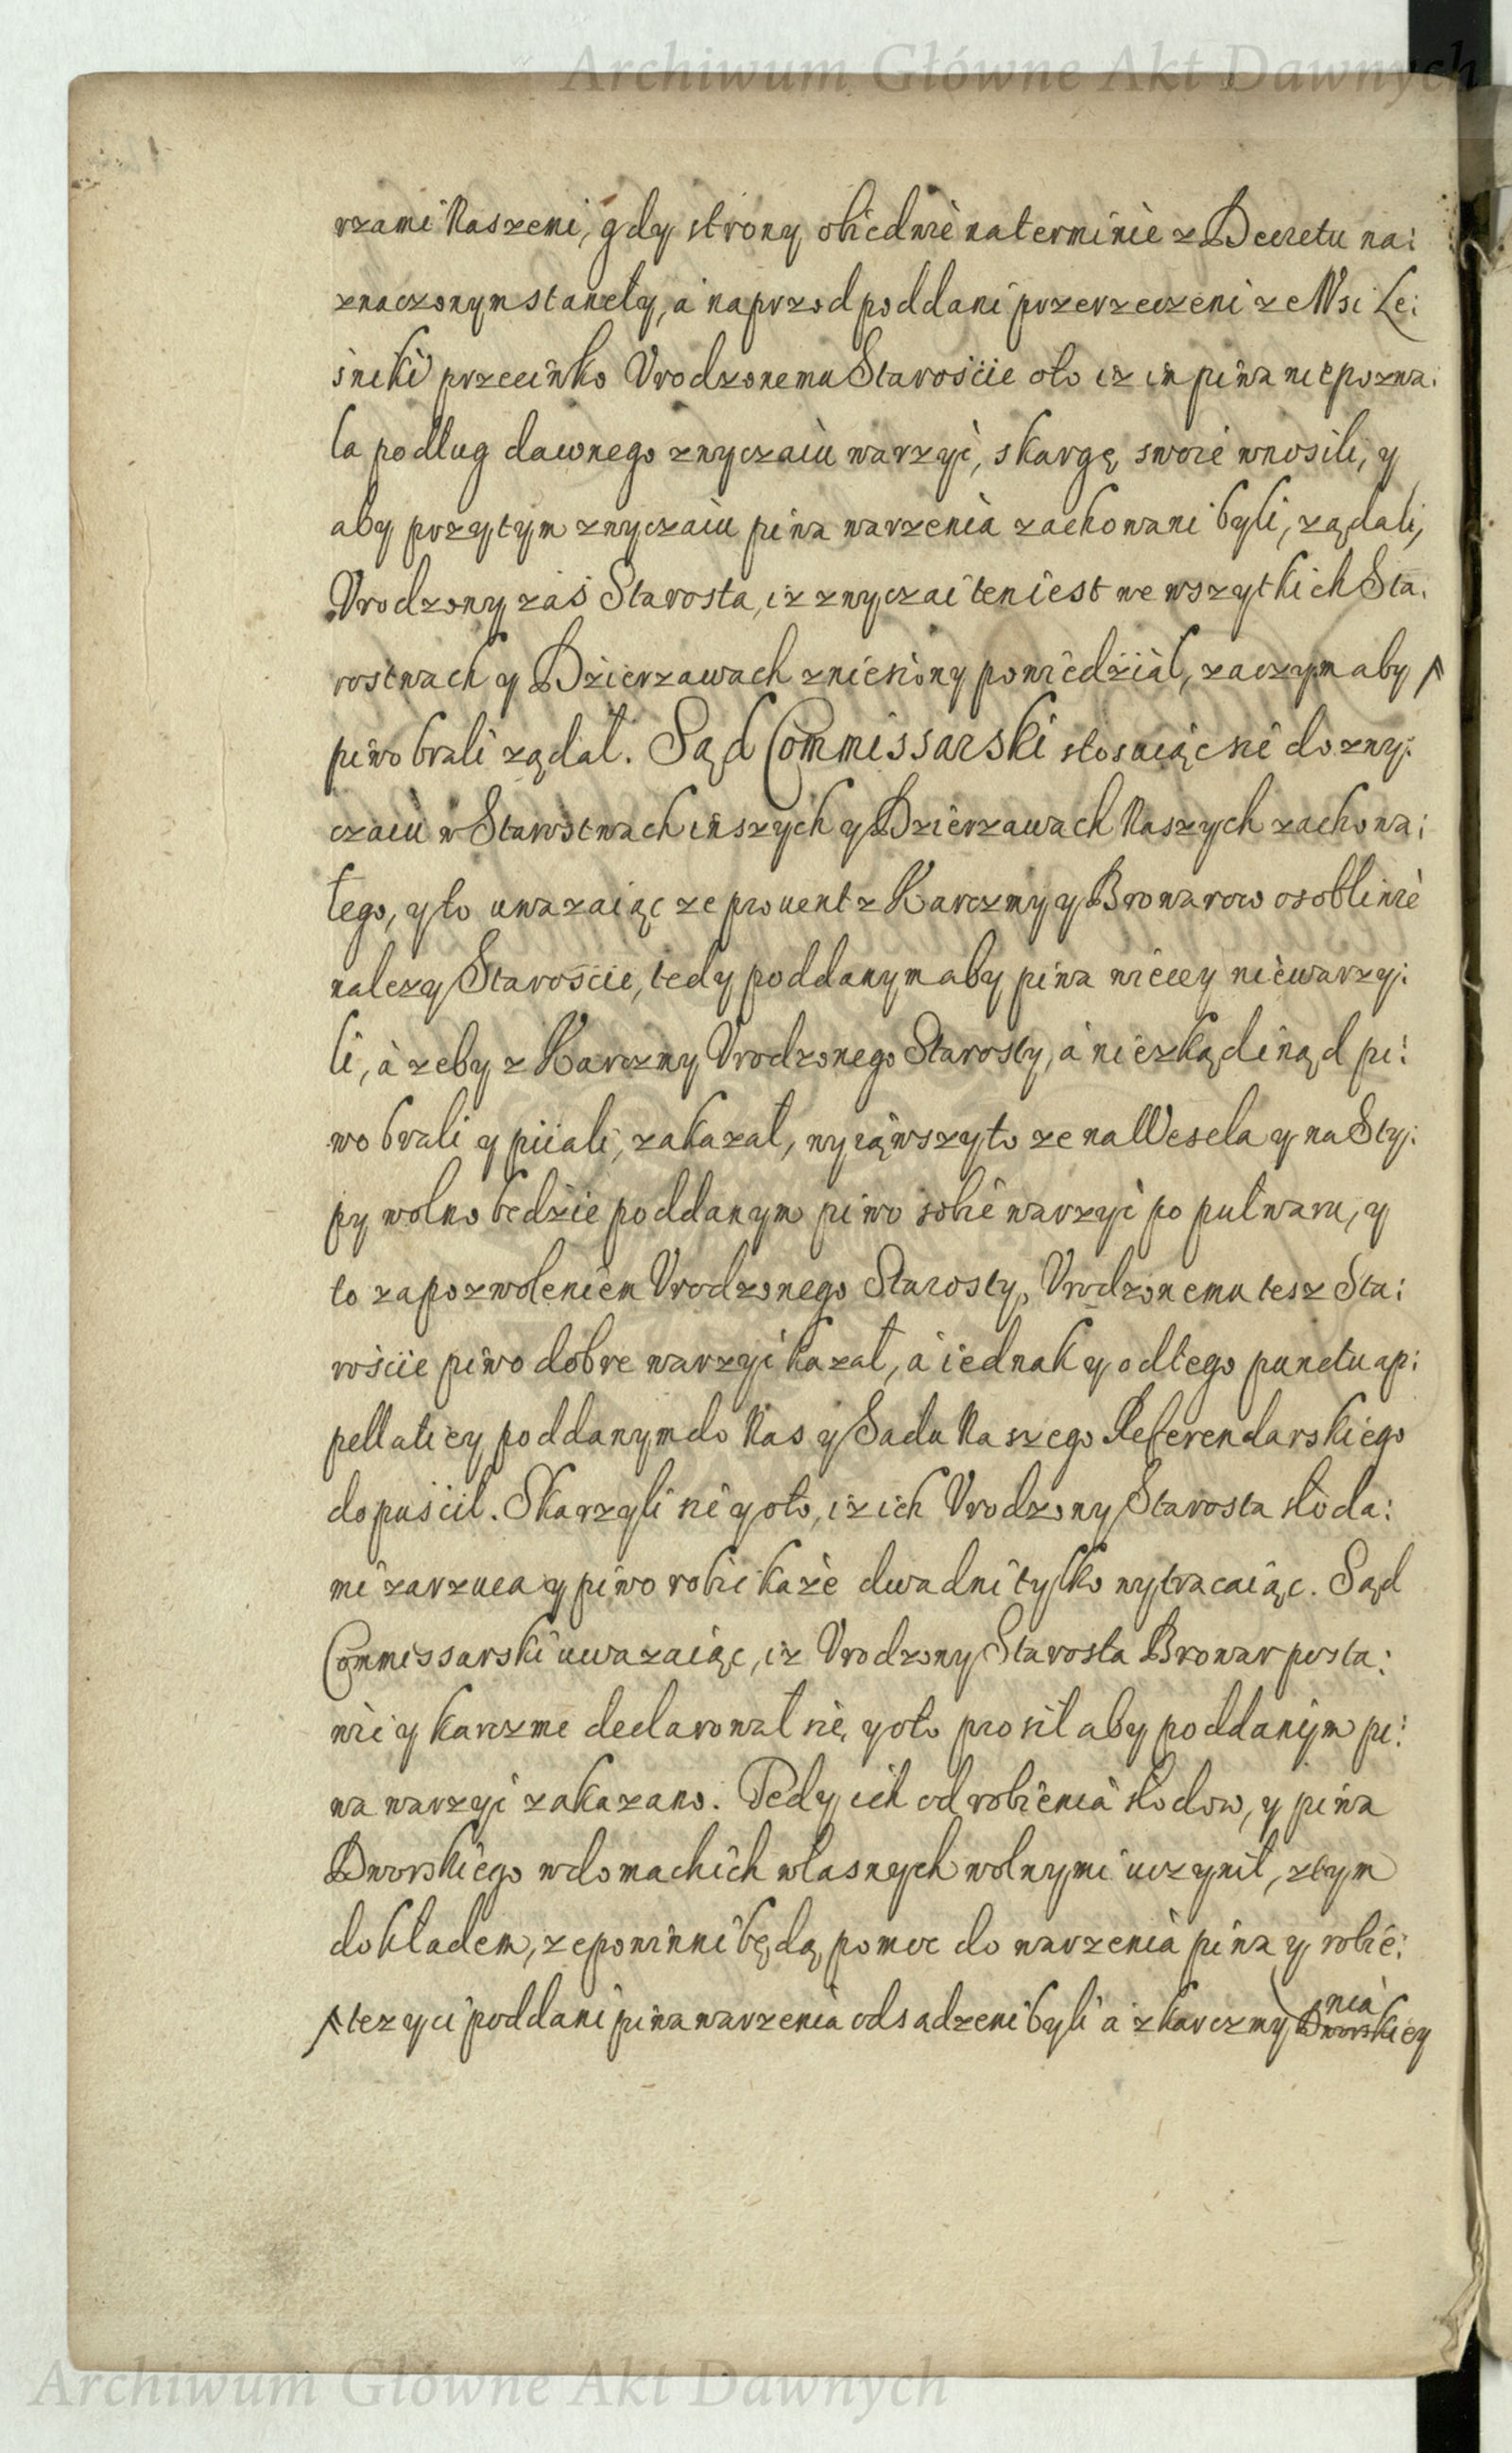 Archiwum Główne Akt Dawnych
rzami Naszemi, gdy strony obiedwie na terminie z Decretu na:
znaczonym stanęły, a naprzod poddani przerzeczeni ze Wsi Le:
śniki przeciwko Vrodzonemu Starościе oto iz im piwa nie pozwa:
la podług dawnego zwyczaiu warzyć, skargę swoię wnosili, y
aby przytym zwyczaiu piwa warzenia zachowani byli, ządali,
Vrodzony zaś Starosta, iz zwyczai ten iest we wszytkich Sta:
rostwach y Dzierzawach zniesiony powiedział, zaczym aby ⩚
piwo brali ządał. Sąd Commissarski stosuiąc się do zwy:
czaiu w Starostwach inszych y Dzierzawach Naszych zachowa:
łego, y to uwazaiąc ze prouent z Karczmy y Browarow osobliwie
nalezy Starościе, tedy poddanym aby piwa więcey niewarzy:
li, à zeby z Karczmy Vrodzonego Starosty, a nie zkąd inąd pi:
wo brali y piiali, zakazał, wyiąwszy to ze na Wesela y na Sty:
py wolno będzie poddanym piwo sobie warzyć po puł waru, y
to za pozwoleniem Vrodzonego Starosty, Vrodzonemu tesz Sta:
rościе piwo dobre warzyć kazał, a iednak y od tego punctu ap:
pellatiey poddanym do Nas y Sadu Naszego Referendarskiego
dopuścił. Skarzyli się y oto, iz ich Vrodzony Starosta słoda:
mi zarzuca y piwo robić kaze dwa dni tylko wytracaiąc. Sąd
Commissarski uwazaiąc, iz Vrodzony Starosta Browar posta:
wić y karczmę declarował się, y oto prosił aby poddanym pi:
wa warzyć zakazano. Tedy ich od robienia słodow, y piwa
Dworskiego w domach ich własnych wolnymi uczynił, z tym
dokładem, ze powinni będą pomoc do warzenia piwa y robie:
nia
⩚ tez y ci poddani piwa warzenia odsadzeni byli a z karczmy Dworskiey
Archiwum Główne Akt Dawnych